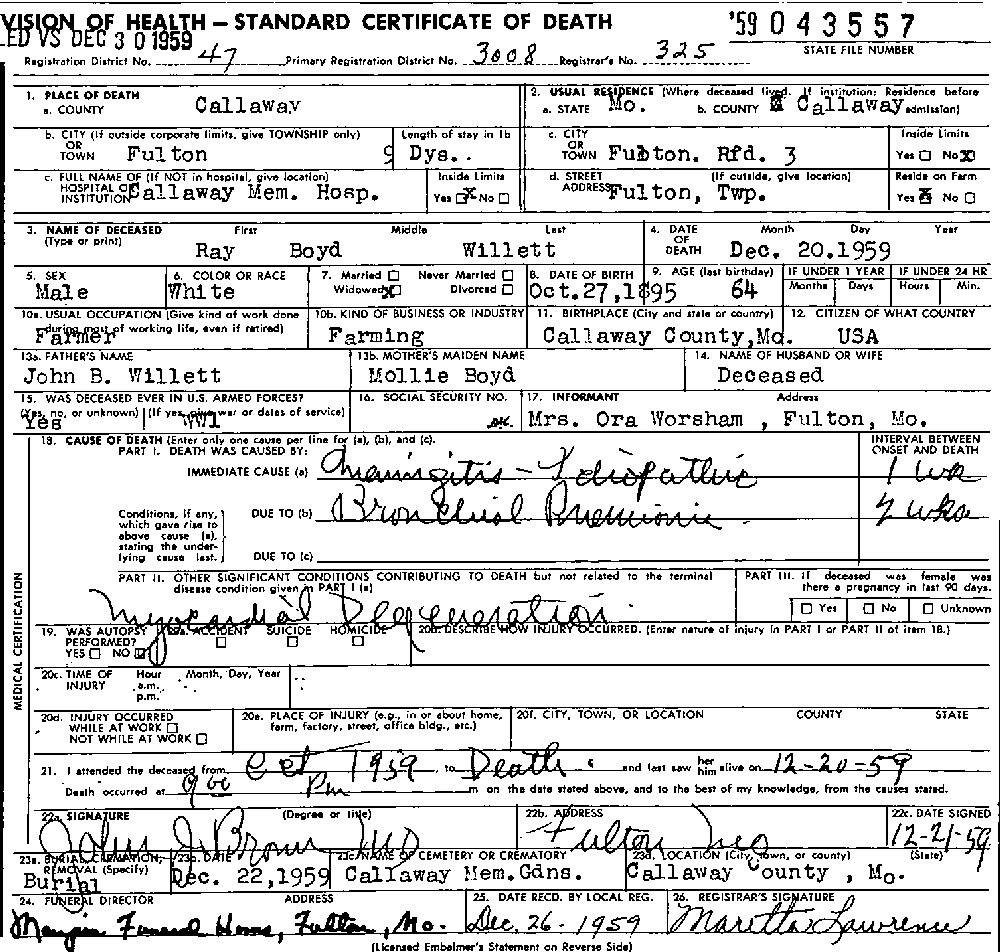 VISION OF HEALTH — STANDARD CERTIFICATE OF DEATH '59 043557
ED VS DEC 30 1959 STATE FILE NUMBER
Registration District No. 47 Primary Registration District No. 3008 Registrar's No. 325
1. PLACE OF DEATH 2. USUAL RESIDENCE (Where deceased lived. If institution: Residence before
a. COUNTY Callaway a. STATE Mo. b. COUNTY Callaway admission)
b. CITY (If outside corporate limits, give TOWNSHIP only) Length of stay in 1b c. CITY Inside Limits
OR TOWN Fulton 9 Dys.. OR TOWN Fubton. Rfd. 3 Yes No X
c. FULL NAME OF (If NOT in hospital, give location) Inside Limits d. STREET (If outside, give location) Reside on Farm
HOSPITAL OR INSTITUTION Callaway Mem. Hosp. Yes X No ADDRESS Fulton, Twp. Yes X No
3. NAME OF DECEASED First Middle Last 4. DATE Month Day Year
(Type or print) Ray Boyd Willett OF DEATH Dec. 20.1959
5. SEX 6. COLOR OR RACE 7. Married Never Married 8. DATE OF BIRTH 9. AGE (last birthday) IF UNDER 1 YEAR IF UNDER 24 HR
Male White Widowed X Divorced Oct.27,1895 64 Months Days Hours Min.
10a. USUAL OCCUPATION (Give kind of work done 10b. KIND OF BUSINESS OR INDUSTRY 11. BIRTHPLACE (City and state or country) 12. CITIZEN OF WHAT COUNTRY
during most of working life, even if retired)
Farmer Farming Callaway County,Mo. USA
13a. FATHER'S NAME 13b. MOTHER'S MAIDEN NAME 14. NAME OF HUSBAND OR WIFE
John B. Willett Mollie Boyd Deceased
15. WAS DECEASED EVER IN U.S. ARMED FORCES? 16. SOCIAL SECURITY NO. 17. INFORMANT Address
(Yes, no, or unknown) (If yes, give war or dates of service)
Yes WW1 Mrs. Ora Worsham , Fulton, Mo.
18. CAUSE OF DEATH (Enter only one cause per line for (a), (b), and (c). INTERVAL BETWEEN
PART I. DEATH WAS CAUSED BY: ONSET AND DEATH
IMMEDIATE CAUSE (a) Meningitis - Idiopathic 1 wk
Conditions, if any, DUE TO (b) Bronchial Pneumonia wks
which gave rise to
above cause (a),
stating the under-
lying cause last. DUE TO (c)
PART II. OTHER SIGNIFICANT CONDITIONS CONTRIBUTING TO DEATH but not related to the terminal PART III. If deceased was female was
disease condition given in PART I (a) there a pregnancy in last 90 days.
Myocardial Degeneration Yes No Unknown
19. WAS AUTOPSY 20a. ACCIDENT SUICIDE HOMICIDE 20b. DESCRIBE HOW INJURY OCCURRED. (Enter nature of injury in PART I or PART II of item 18.)
PERFORMED?
YES NO
MEDICAL CERTIFICATION
20c. TIME OF Hour Month, Day, Year
INJURY a.m.
p.m.
20d. INJURY OCCURRED 20e. PLACE OF INJURY (e.g., in or about home, 20f. CITY, TOWN, OR LOCATION COUNTY STATE
WHILE AT WORK farm, factory, street, office bldg., etc.)
NOT WHILE AT WORK
21. I attended the deceased from Oct 1959 to Death and last saw her him alive on 12-20-59
Death occurred at 9 00 Pm m on the date stated above, and to the best of my knowledge, from the causes stated.
22a. SIGNATURE (Degree or title) 22b. ADDRESS 22c. DATE SIGNED
John J Brown MD Fulton Mo 12-21-59
23a. BURIAL, CREMATION, 23b. DATE 23c. NAME OF CEMETERY OR CREMATORY 23d. LOCATION (City, town, or county) (State)
REMOVAL (Specify)
Burial Dec. 22,1959 Callaway Mem.Gdns. Callaway County , Mo.
24. FUNERAL DIRECTOR ADDRESS 25. DATE RECD. BY LOCAL REG. 26. REGISTRAR'S SIGNATURE
Maupin Funeral Home, Fulton, Mo. Dec. 26 - 1959 Maretta Lawrence
(Licensed Embalmer's Statement on Reverse Side)